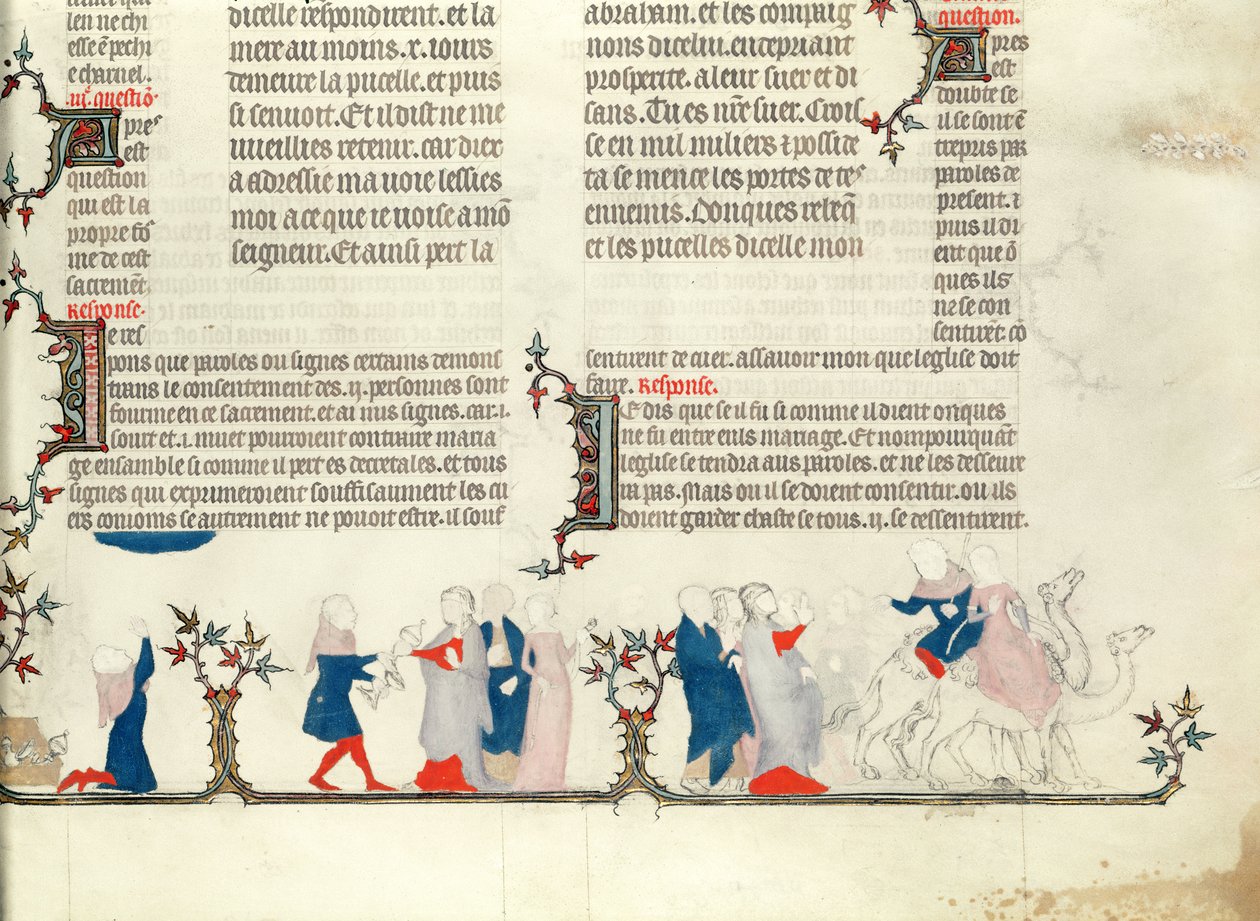 len ne chiet
esse ē pechi
e charnel.
.iiįͤ. questiō.
Apresˢ
est
question
qui est la
propre fo
me de cest
sacremēt.
Response.
Je res
pons que paroles ou signes certains demons
trans le consentement des .ij. personnes sont
fourme en ce sacrement. et ai mis signes. car .i.
sourt et .i. muet pourroient contraire maria
ge ensamble si comme il pert es decretales. et tous
signes qui exprimeroient souffisaument les cu
ers conioins se autrement ne pouoit estre. il souf
dicelle respondirent. et la
mere au moins .x. iours
demeure la pucelle. et puis
si senuoit. Et il dist ne me
vueillies retenir. car diex
a adressie ma uoie lessies
moi a ce que ie uoise a mō
seigneur. Et ainsi pert la
abraham. et les compaig
nons dicelui. en cepriant
prosperite. a leur suer et di
sans. Tu es nr̄e suer. Crois
se en mil miliers ⁊ posside
ta semēce les portes de teˢ
ennemis. Donques rebeq̄
et les pucelles dicelle mon
question.
Apres
est
doubte se
il se sont ē
trepris par
paroles de
present. ⁊
puis il di
ent que ō
ques ils
ne se con
sentirēt. cō
sentirent de cuer. assauoir mon que leglise doit
faire. Response.
Je dis que se il fu si comme il dient onques
ne fu entre euls mariage. Et nompourquāt
leglise se tendra aus paroles. et ne les desseure
ra pas. Mais ou il se doient consentir. ou ils
doient garder chaste se tous .ij. se dessentirent.